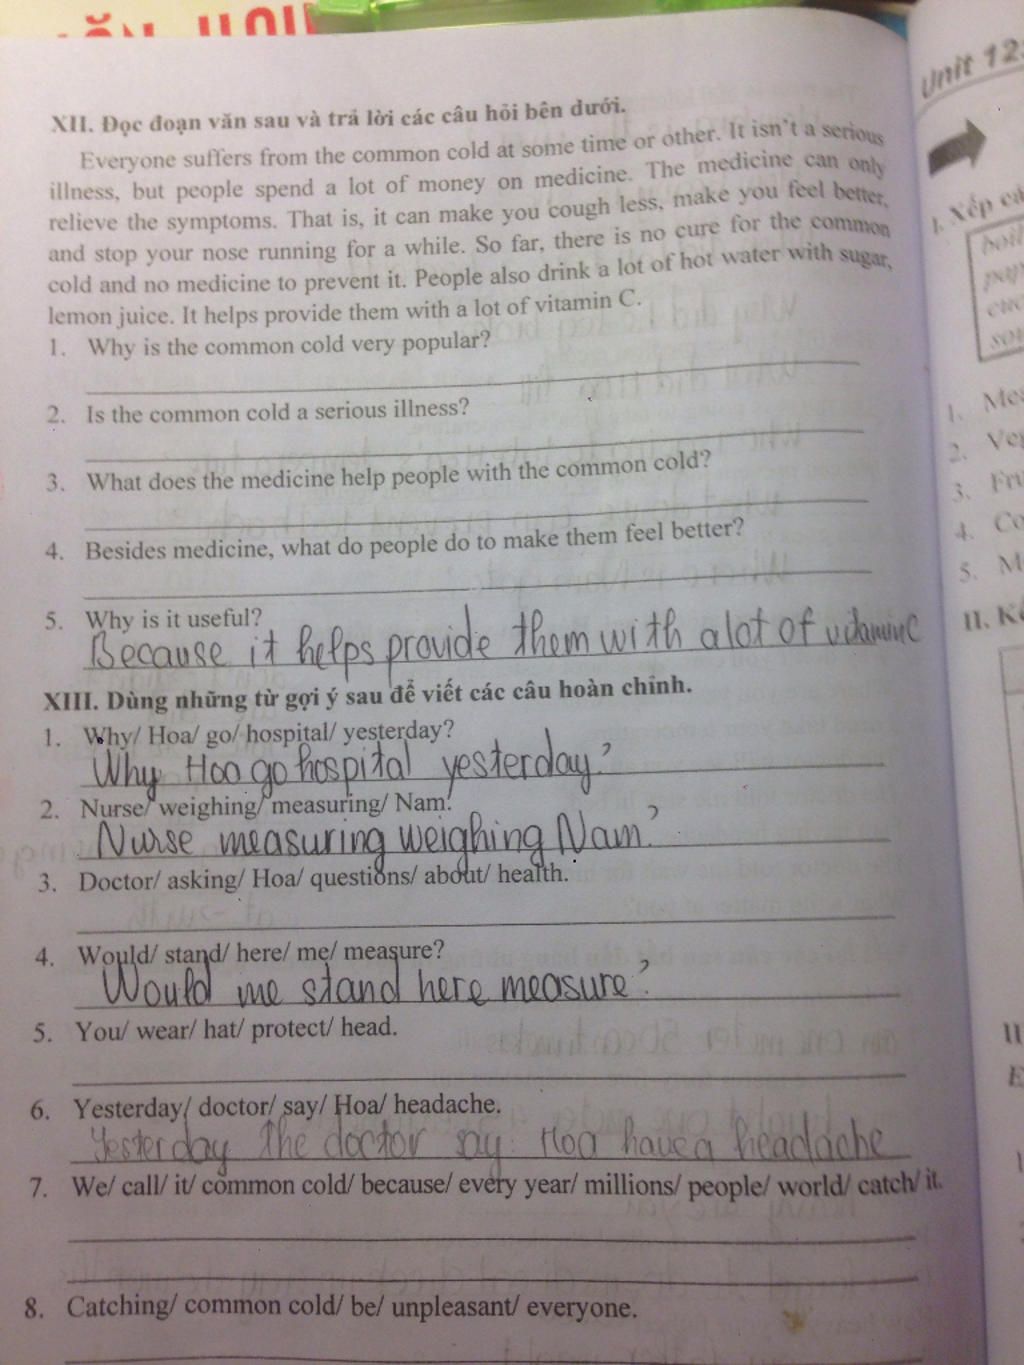 Unit 12
XII. Đọc đoạn văn sau và trả lời các câu hỏi bên dưới.
Everyone suffers from the common cold at some time or other. It isn't a serious
illness, but people spend a lot of money on medicine. The medicine can only
relieve the symptoms. That is, it can make you cough less, make you feel better,
and stop your nose running for a while. So far, there is no cure for the common
cold and no medicine to prevent it. People also drink a lot of hot water with sugar,
lemon juice. It helps provide them with a lot of vitamin C.
1. Why is the common cold very popular?
2. Is the common cold a serious illness?
3. What does the medicine help people with the common cold?
4. Besides medicine, what do people do to make them feel better?
5. Why is it useful?
Because it helps provide them with a lot of vitamin C
XIII. Dùng những từ gợi ý sau để viết các câu hoàn chỉnh.
1. Why/ Hoa/ go/ hospital/ yesterday?
Why Hoa go hospital yesterday?
2. Nurse/ weighing/ measuring/ Nam.
Nurse measuring weighing Nam?
3. Doctor/ asking/ Hoa/ questions/ about/ health.
4. Would/ stand/ here/ me/ measure?
Would me stand here measure?
5. You/ wear/ hat/ protect/ head.
6. Yesterday/ doctor/ say/ Hoa/ headache.
Yesterday The doctor say Hoa have a headache
7. We/ call/ it/ common cold/ because/ every year/ millions/ people/ world/ catch/ it.
8. Catching/ common cold/ be/ unpleasant/ everyone.
I. Xếp
1.
2.
3.
4.
5.
II.